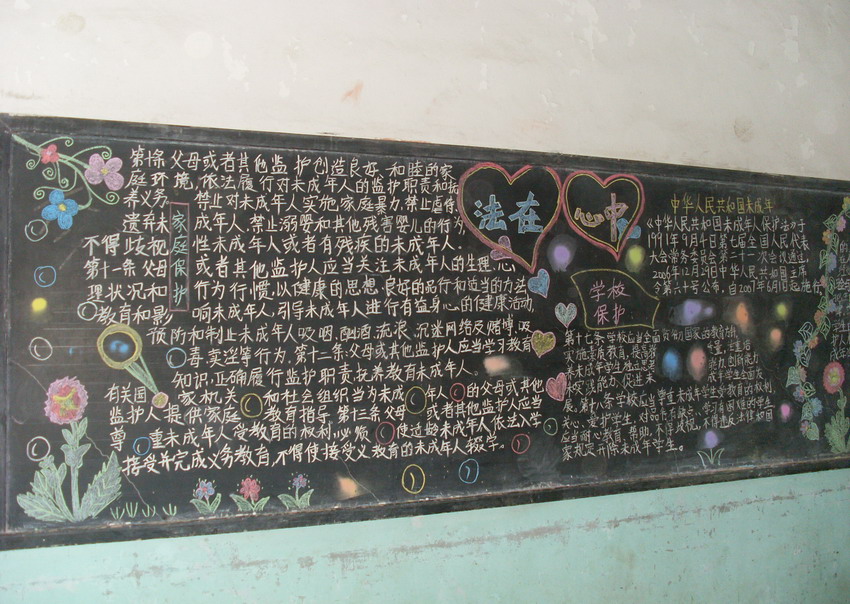 第十条 父母或者其他监护创造良好、和睦的家
庭环境,依法履行对未成年人的监护职责和抚
养义务。禁止对未成年人实施家庭暴力,禁止虐待、
遗弃未成年人,禁止溺婴和其他残害婴儿的行为
不得歧视性未成年人或者有残疾的未成年人.
第十一条 父母或者其他监护人应当关注未成年人的生理、心
理状况和行为行惯,以健康的思想、良好的品行和适当的方法
教育和影响未成年人,引导未成年人进行有益身心的健康活动,
预防和制止未成年人吸咽、酗酒、流浪、沉迷网络及赌博、吸
毒、卖淫等行为。第十二条:父母或其他监护人应当学习教育
知识,正确履行监护职责抚养教育未成年人。
有关国家机关和社会组织当为未成年人的父母或其他
监护人提供家庭教育指导 第十三条父母或者其他监护人应当
尊重未成年人受教育的权利,必须使适龄未成年人依法入学
接受并完成义务教育,不得使接受义教育的未成年人辍学。
家庭保护
法在
心中
学校
保护
中华人民共和国未成年
《中华人民共和国未成年人保护法》于
1991年9月4日第七届全国人民代表
大会常务委员会第二十一次会议通过,
2006年12月29日中华人民共和国主席
令第六十号公布,自2007年6月1日起施行
第十七条学校应当全面贯彻国家教育方针,
实施素质教育,提高
未成年学生独立思考
能力、创新能力
成年学生全面发
展。第十八条学校应当尊重未成年学生受教育的权利,
关心、爱护学生,对品行有缺点、学习有困难的学生
应当耐心教育、帮助,不得歧视,不得违反法律和国
家规定开除未成年学生。